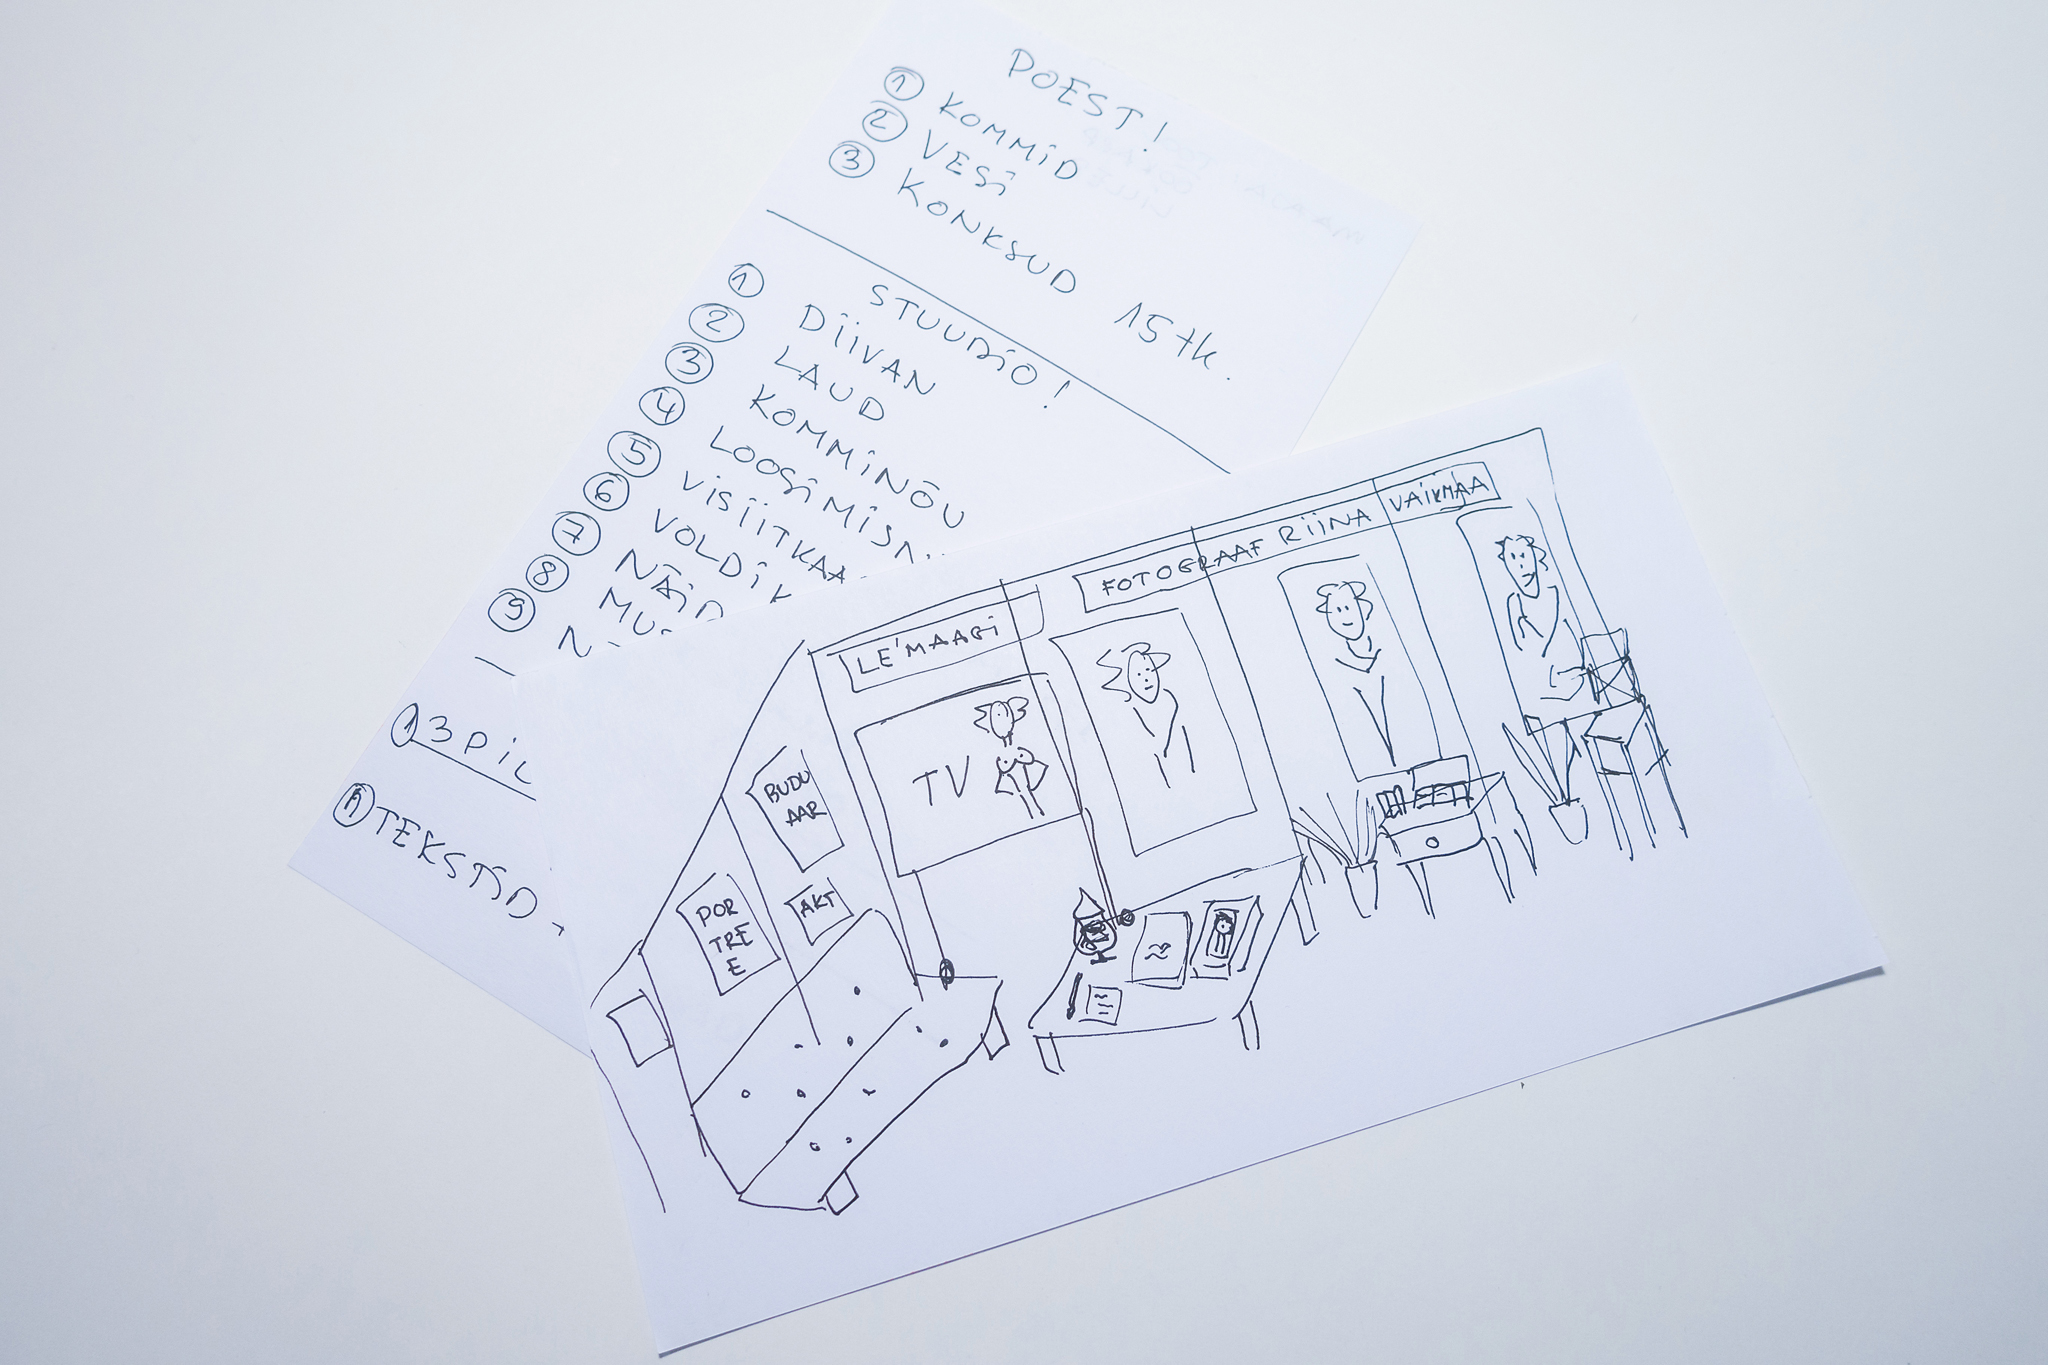 POEST!
1 KOMMID
2 VESI
3 KONKSUD 15 tk.
STUUDIO!
1 DIIVAN
2 LAUD
3 KOMMINÕU
4 LOOSIMIS
5 VISIITKAA
6 VOLDIK
7 NÄID
8 MU
9 N
1 3 PIL
A TEKSTID
LE'MAAGI
FOTOGRAAF RIINA VAIKMAA
TV
BUDU
AAR
AKT
POR
TRE
E